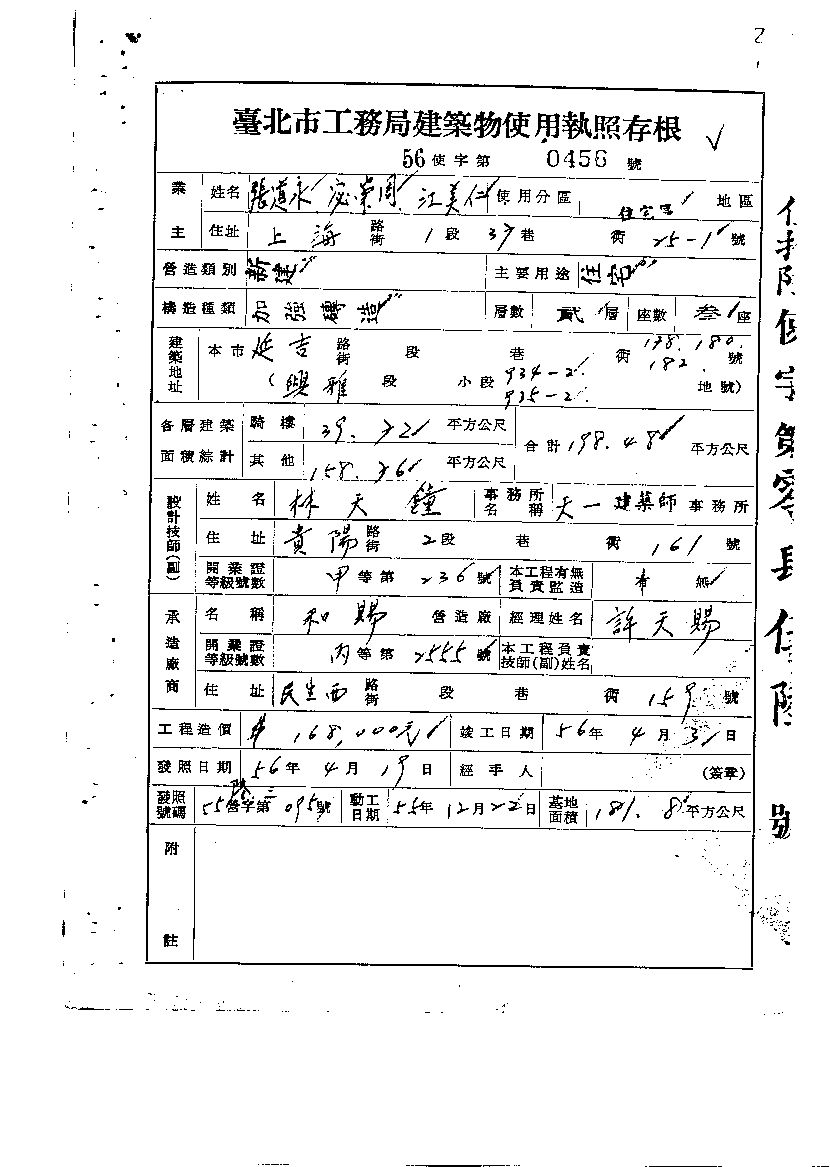 臺北市工務局建築物使用執照存根
56使字第 0456 號
業主 姓名 張道永 江美仁 使用分區 住宅區 地區
住址 上海 路街 1段 37巷 衖 25-1 號
營造類別 新建 主要用途 住宅
構造種類 加強磚造 層數 貳層 座數 叁座
建築地址 本市 延吉 路街 段 巷 衖 178.180.182. 號
(興雅 段 小段 934-2 935-2 地號)
各層建築面積綜計 騎樓 39.72 平方公尺 合計 198.48 平方公尺
其他 158.76 平方公尺
設計技師(副) 姓名 林天鐘 事務所名稱 天一建築師事務所
住址 貴陽 路街 2段 巷 衖 161 號
開業證等級號數 甲等第 236 號 本工程有無負責監造 有 無
承造廠商 名稱 和賜 營造廠 經理姓名 許天賜
開業證等級號數 丙等第 2555 號 本工程負責技師(副)姓名
住址 民生西 路街 段 巷 衖 159 號
工程造價 168,000元 竣工日期 56年4月3日
發照日期 56年4月19日 經手人 (簽章)
發照號碼 55營字第095號 動工日期 55年12月22日 基地面積 181.8 平方公尺
附註